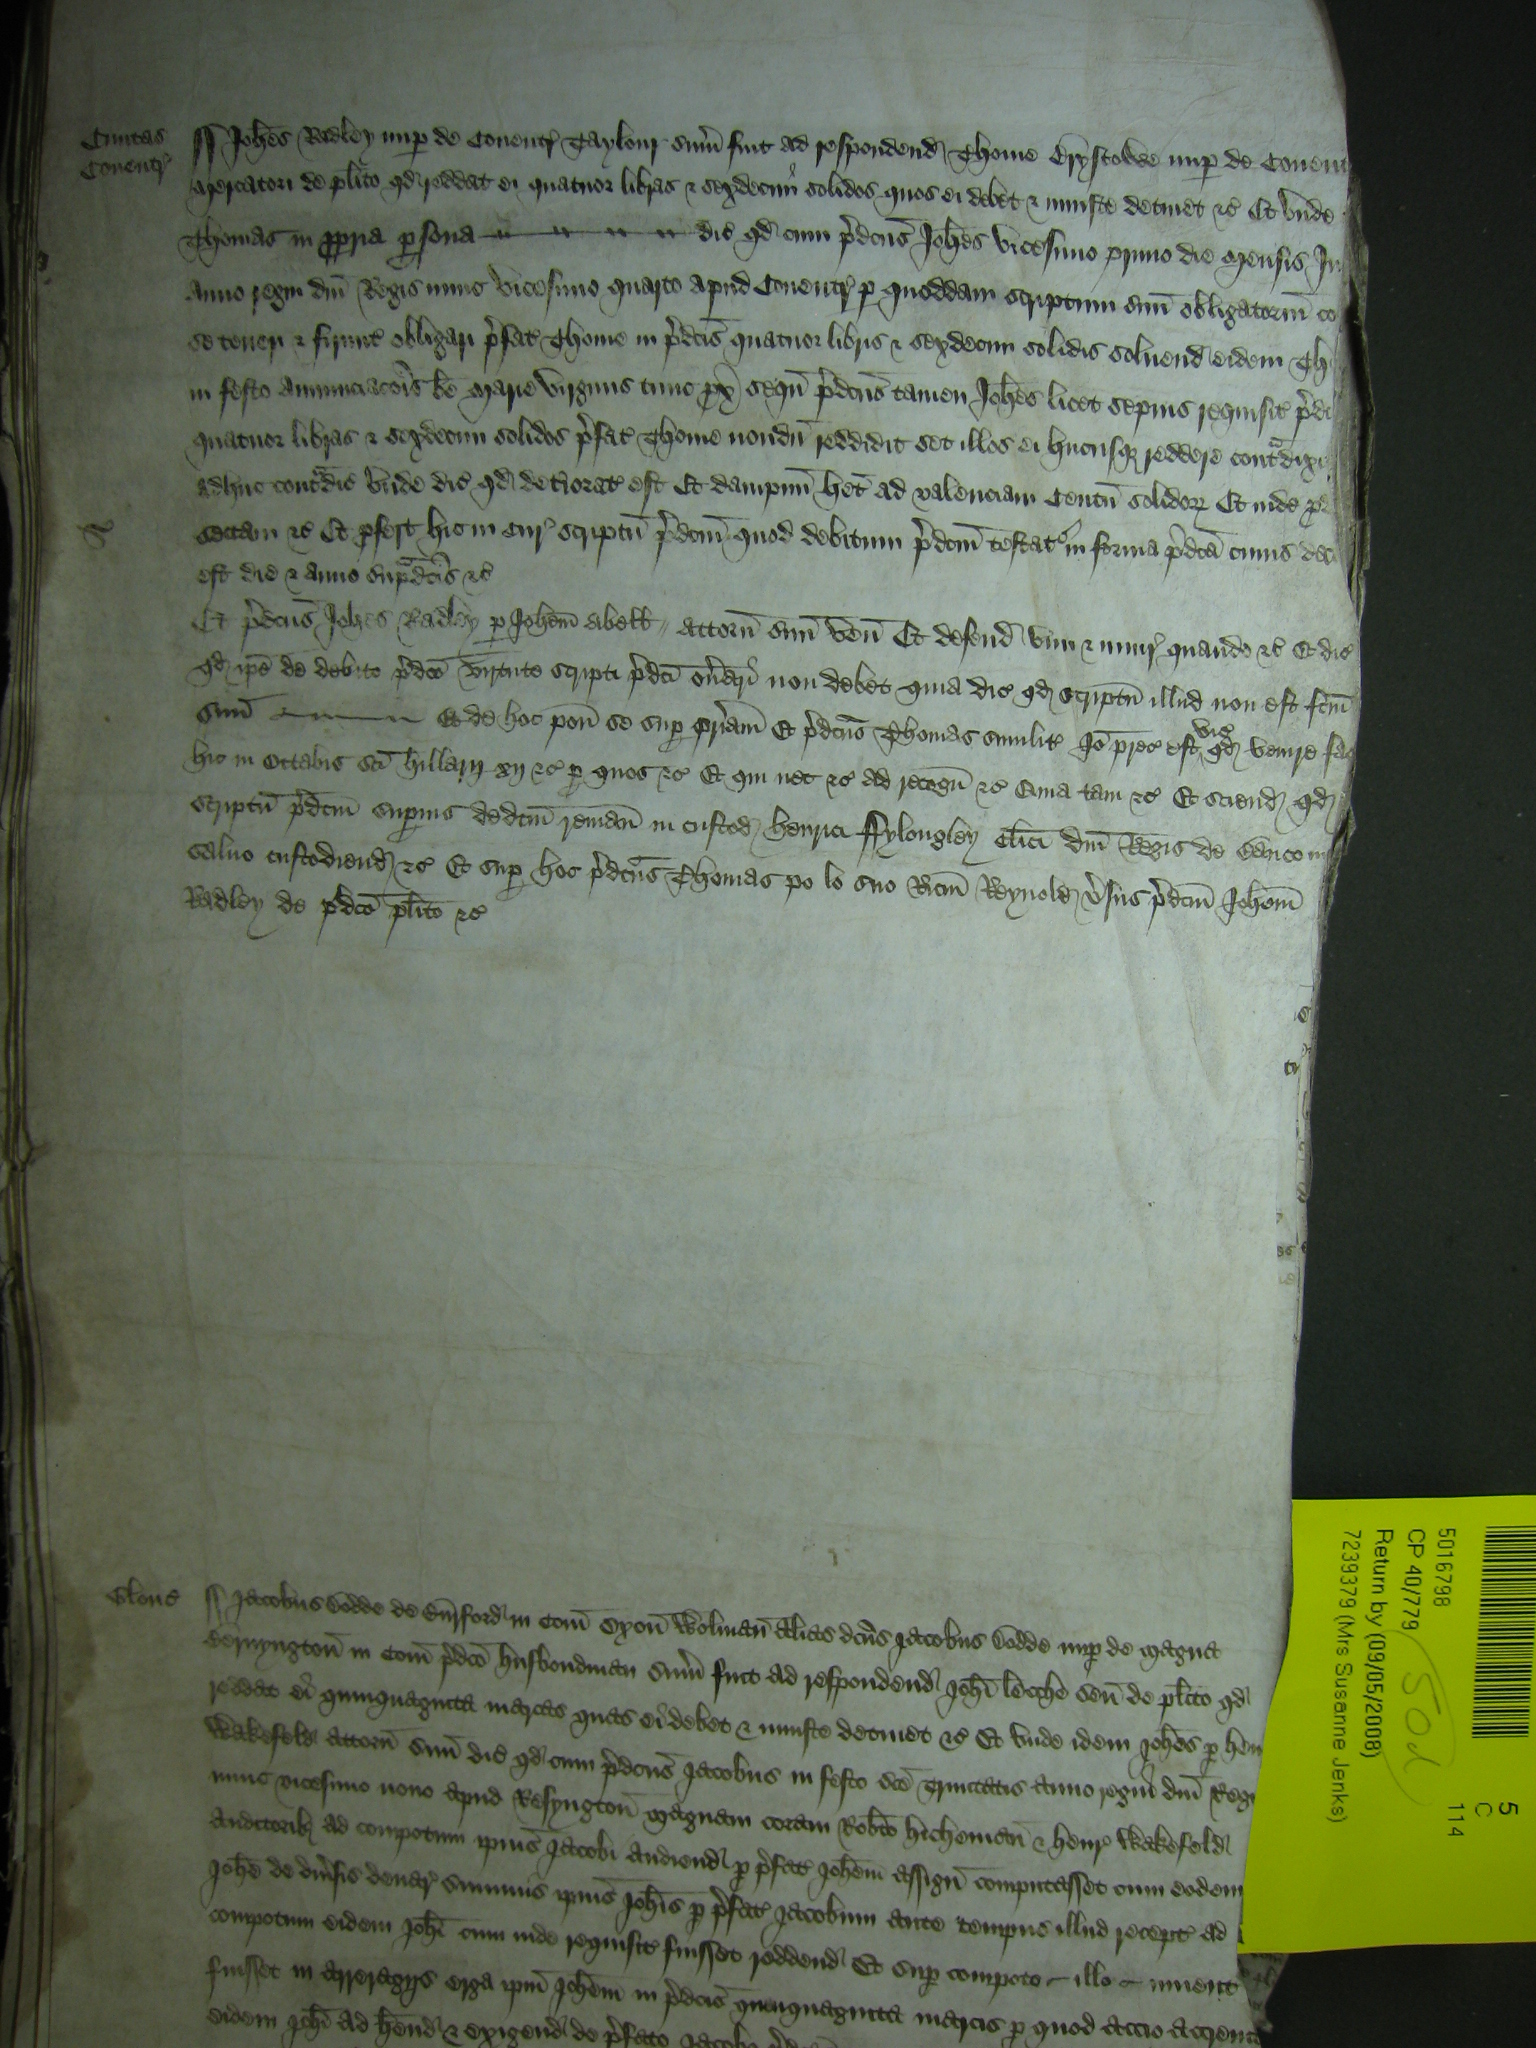 Ciuitas
Couentr'
Joħes Radley nup de Couentr' Taylour sum̄ fuit ad respondend' Thome Brystowe nup de Couent
Mercatori de pl̄ito qd reddat ei quatuor libras & sexdecim solidos quos ei debet & iniuste detinet &c Et vnde
Thomas in ppria psona dic' qd cum p̄dcūs Joħes vicesimo primo die Mensis
Anno regni dn̄i Regis nunc vicesimo quarto apud Couentr' p quoddam scriptum suū obligatoriū co
se teneri & firmit' obligari p̄fat' Thome in p̄dcīs quatuor libris & sexdecim solidis soluend' eidem Th
in festo Annunciacōis bē Marie virginis tunc px' seqū p̄dcūs tamen Joħes licet sepius requisit' p̄dc
quatuor libras & sexdecim solidos p̄fat' Thome nondū reddidit set illos ei hucusq, reddere contᵃdixit
adhuc contᵃdic' vnde dic' qd det'iorat' est Et dampnū het ad valenciam Centū solidor' Et inde p
sectam &c Et pfert hic in Cur' scriptū p̄dcm̄ quod debitum p̄dcm̄ testat' in forma p̄dcā cuius dat
est die & anno supᵃdcīs &c
Et p̄dcūs Joħes Radley p Joħem Abell attorn̄ suū ven̄ Et defend' vim & iniur' quando &c Et dic'
qd ip̄e de debito p̄dcō virtute scripti p̄dcī on̄ari non debet quia dic' qd scriptū illud non est fcm̄
suū Et de hoc pon̄ se sup pr̄iam Et p̄dcūs Thomas similit' Iō prec' est vic' qd venire fac
hic in Octabis scī Hillarij xij &c p quos &c Et qui nec &c ad recogn̄ &c Quia tam &c Et sciend' qd
scriptū p̄dcm̄ supius dedcm̄ reman̄ in custod' Henrici Fylongley cl̄ici dn̄i Regis de Banco
saluo custodiend' &c Et sup hoc p̄dcūs Thomas po lo suo Ricm̄ Reynold' v̄sus p̄dcm̄ Joħem
Radley de p̄dcō pl̄ito &c
Glouc'
Jacobus Dodde de in Com̄ Oxon̄ Wolman̄ alias dcūs Jacobus Dodde nup de Magna
in Com̄ p̄dcō husbondman sum̄ fuit ad respondend' Joħi Leche sen̄ de pl̄ito qd
reddat ei quinquaginta marcas quas ei debet & iniuste detinet &c Et vnde idem Joħes p Hen
Wakefeld' attorn̄ suū dic' qd cum p̄dcūs Jacobus in festo scē Trinitatis anno regni dn̄i Regis
nunc vicesimo nono apud Magnam coram Rob̄to Hicheman̄ & Henr' Wakefeld'
auditorib3 ad compotum ipius Jacobi audiend' p p̄fat' Joħem assign̄ computasset cum eodem
Joħe de diūsis denar' summis ipius Joħis p p̄fat' Jacobum ante tempus illud recept' ad
compotum eidem Joħi cum inde requisit' fuisset reddend' Et sup compoto illo inuent
fuisset in arreragijs erga ipm̄ Joħem in p̄dcīs quinquaginta marcis p quod accio accreuit
eidem Joħi ad hend' & exigend' de p̄fato Jacobo
5016798
CP 40/779
Return by (09/05/2008)
7239379 (Mrs Susanne Jenks)
50d
5
C
114